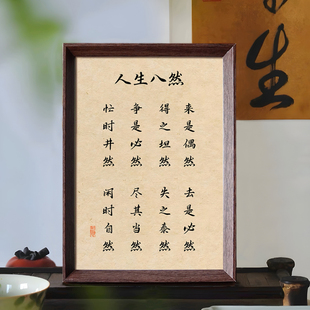 人生八然
来是偶然
去是必然
得之坦然
失之泰然
争是必然
尽其当然
忙时井然
闲时自然
生